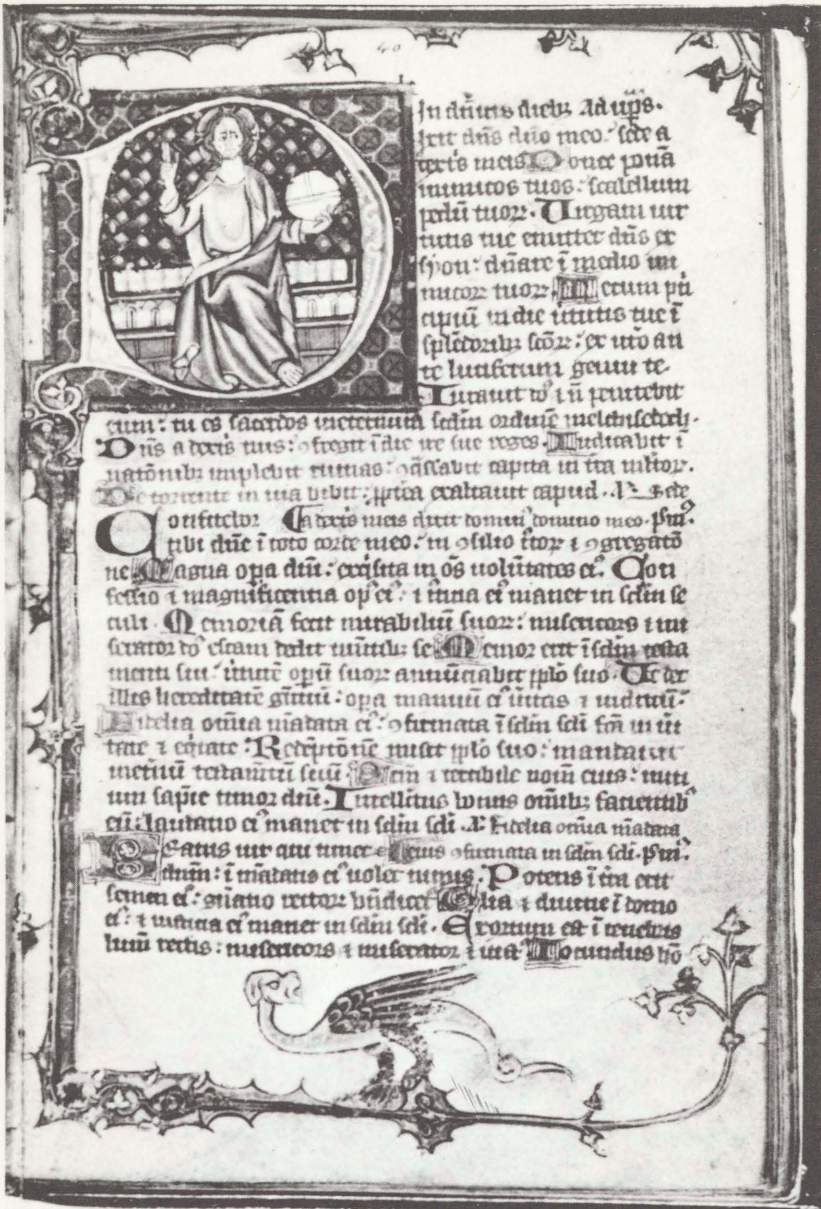 40
In dñicis diebȝ Ad vp̄s.
ixit dñs dño meo: sede a
dextris meis Donec ponā
inimicos tuos: scabellum
pedū tuoꝝ. Virgam uir
tutis tue emittet dñs ex
syon: dñare ī medio ini
micoꝝ tuoꝝ. Tecum prī
cipiū in die ututis tue ī
splēdoribȝ scōꝝ: ex utō an
te luciferum genui te.
Iurauit dō s ī ñ penitebit
eum: tu es sacerdos ineternum scdm ordinē melchisedech.
Dñs a dextris tuis: ꝯfregit ī die ire sue reges. Iudicabit ī
natōnibȝ implebit ruinas: ꝯqssabit capita in tra multoꝝ.
De torrente in uia bibit: ꝓpterea exaltauit capud. A Sede
Confitebor a dextris meis dixit dominꝰ domino meo. Psm̄.
tibi dñe ī toto corde meo: in ꝯsilio iustoꝝ ⁊ ꝯgregatō
ne. Magna opa dñi: exqsita in ōs uolūtates eiꝰ. Con
fessio ⁊ magnificentia opꝰ eiꝰ: ⁊ iusticia eiꝰ manet in sclm se
culi. Memoriā fecit mirabiliū suoꝝ: misericors ⁊ mi
serator dōs escam dedit timētibȝ se Memor erit ī sclm testa
menti sui: uirtutē opū suoꝝ annūciabit pplo suo. Ut det
illis hereditatē gentiū: opa manuū eiꝰ uitas ⁊ iudiciū.
Fidelia omīa mādata eiꝰ: ꝯfirmata ī sclm scli fca in ui
tate ⁊ eqtate. Redēptōnē misit pplo suo: mandauit
ineternū testamētū suū. Scm ⁊ terribile nomē eius: initi
um sapīe timor dñi. Intellectus bonus omībȝ facientibꝰ
eū: laudatio eiꝰ manet in sclm scli. A Fidelia omīa mādata
Beatus uir qui timet eius ꝯfirmata in sclm scli. Psm̄.
dñm: ī mādatis eiꝰ uolet nimis. Potens ī tra erit
semen eiꝰ: gñatio rectoꝝ bn̄dicet Glia ⁊ diuitie ī domo
eiꝰ: ⁊ iusticia eiꝰ manet in sclm scli. Exortum est ī tenebris
lumē rectis: misericors ⁊ miserator ⁊ iustꝰ Iocundus hō